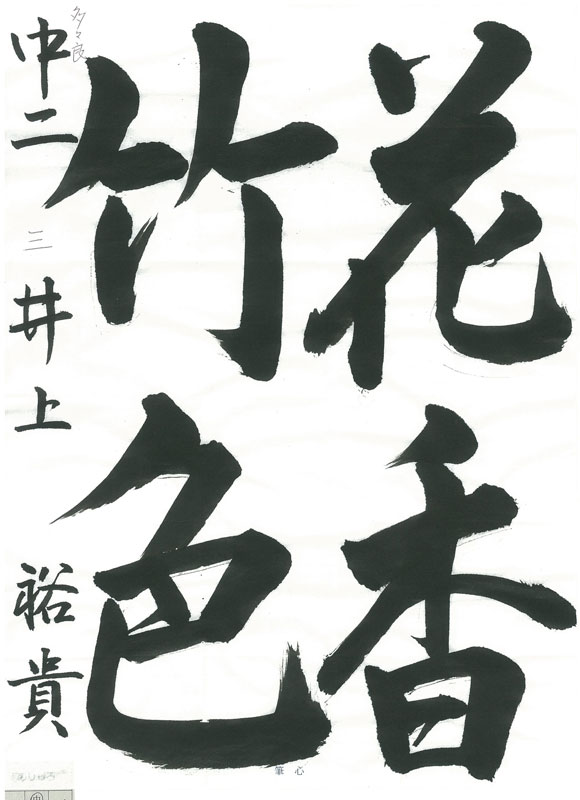 花香
竹色
多々良
中二 三 井上 裕貴
筆心
中